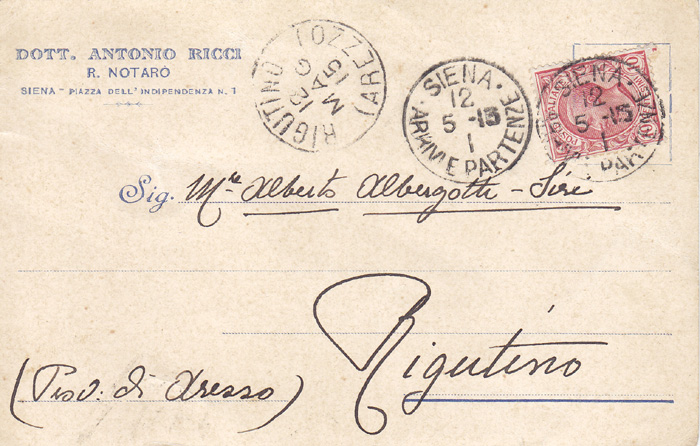 DOTT. ANTONIO RICCI
R. NOTARO
SIENA - PIAZZA DELL'INDIPENDENZA N. 1
RIGUTINO (AREZZO)
12 MAG 15
SIENA
12
5 - 15
1
ARRIVI E PARTENZE
SIENA
12
5 - 15
1
Sig. Alberto Albergotti - Siri
Rigutino
(Prov: di Arezzo)